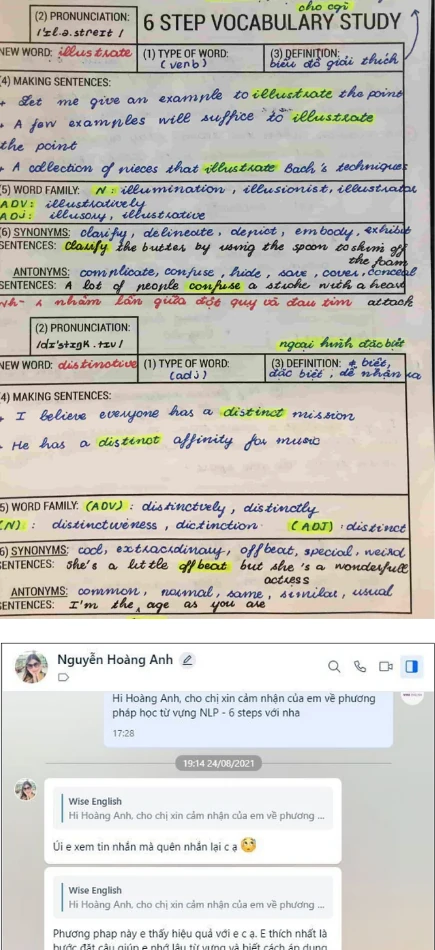 cho cgi
(2) PRONUNCIATION:
/'ɪl.ə.streɪt /
6 STEP VOCABULARY STUDY
NEW WORD: illustrate
(1) TYPE OF WORD:
(verb)
(3) DEFINITION:
biểu đồ giải thích
(4) MAKING SENTENCES:
+ Let me give an example to illustrate the point
+ A few examples will suffice to illustrate
the point
+ A collection of pieces that illustrate Bach's techniques
(5) WORD FAMILY: N: illumination, illusionist, illustrator
ADV: illustratively
ADJ: illusory, illustrative
(6) SYNONYMS: clarify, delineate, depict, embody, exhibit
SENTENCES: Clarify the butter by using the spoon to skim off
the foam
ANTONYMS: complicate, confuse, hide, save, cover, conceal
SENTENCES: A lot of people confuse a stroke with a heart
nhầm lẫn giữa đột quỵ và đau tim attack
(2) PRONUNCIATION:
/dɪ'stɪŋk.tɪv/
ngoại hình đặc biệt
NEW WORD: distinctive
(1) TYPE OF WORD:
(adj)
(3) DEFINITION: ≠ biệt,
đặc biệt, dễ nhận ra
(4) MAKING SENTENCES:
+ I believe everyone has a distinct mission
- He has a distinct affinity for music
5) WORD FAMILY: (ADV): distinctvely, distinctly
(N): distinctiveness, dictinction (ADJ): distinct
6) SYNONYMS: cool, extraordinary, offbeat, special, weird
SENTENCES: She's a little offbeat but she's a wonderfull
actress
ANTONYMS: common, normal, same, similar, usual
SENTENCES: I'm the age as you are
Nguyễn Hoàng Anh
Hi Hoàng Anh, cho chị xin cảm nhận của em về phương
pháp học từ vựng NLP - 6 steps với nha
17:28
19:14 24/08/2021
Wise English
Hi Hoàng Anh, cho chị xin cảm nhận của em về phương ...
Úi e xem tin nhắn mà quên nhắn lại c ạ
Wise English
Hi Hoàng Anh, cho chị xin cảm nhận của em về phương ...
Phương phap này e thấy hiệu quả với e c ạ. E thích nhất là
bước đặt câu giúp e nhớ lâu từ vựng và biết cách áp dụng